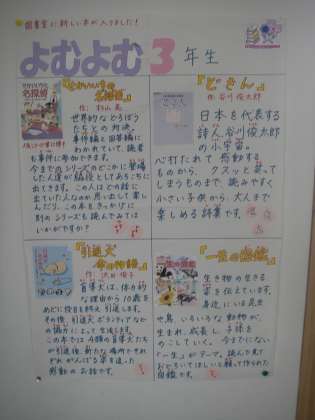 図書室に新しい本が入りました!
よむよむ3年生
名探偵
作: 杉山 亮
世界的などろぼう
たちとの対決。
事件編と回答編に
わかれていて、読者
も事件に参加できます。
今までのシリーズのどこかに登場
した人達が脇役としてあちこちに
出てきます。この人はどの話に
出ていた人なのか思い出して楽し
んだり、この本をきっかけに
別のシリーズも読んでみては
いかがでしょうか?
『どきん』
作: 谷川俊太郎
日本を代表する
詩人、谷川俊太郎
の小宇宙。
心打たれて感動する
ものから、クスッと笑って
しまうものまで、読みやすく
小さい子供から、大人まで
楽しめる詩集です。
『引退犬 命の物語』
盲導犬は、体力的
な理由から10歳を
めどに役目を終え引退します。
その後、引退犬ボランティアなど
の協力によって生活します。
この本では4頭の盲導犬たち
が引退後、新たな場所でそれ
ぞれがんばる姿を追った
感動のお話です。
『一生の図鑑』
生き物の生きる
姿を伝えています。
身近にいる昆虫
や鳥、いろいろな動物が、
生まれ、成長し、子孫を
のこしていく。今までにない
「一生」がテーマ。読んだ見て
おどろいてほしいと願って作られた
図鑑です。